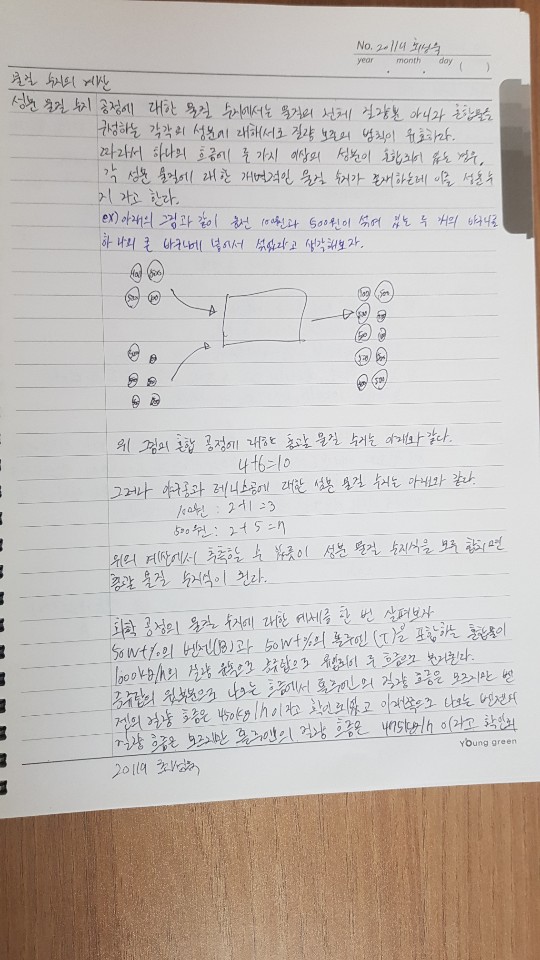 No. 20119 최성욱
year . month . day ( )
물질 수지의 계산
성분 물질 수지 공정에 대한 물질 수지에서는 물질의 전체 질량뿐 아니라 혼합물을
구성하는 각각의 성분에 대해서도 질량 보존의 법칙이 유효하다.
따라서 하나의 흐름에 두 가지 이상의 성분이 혼합되어 있는 경우,
각 성분 물질에 대한 개별적인 물질 수지가 존재하는데 이를 성분 수
지 라고 한다.
ex) 아래의 그림과 같이 동전 100원과 500원이 섞여 있는 두 개의 바구니를
하나의 큰 바구니에 넣어서 섞었다고 생각해보자.
위 그림의 혼합 공정에 대한 총괄 물질 수지는 아래와 같다.
4+6=10
그러나 야구공과 테니스공에 대한 성분 물질 수지는 아래와 같다.
100원 : 2+1=3
500원 : 2+5=7
위의 계산에서 추측할 수 있듯이 성분 물질 수지식을 모두 합치면
총괄 물질 수지식이 된다.
화학 공정의 물질 수지에 대한 예제를 한 번 살펴보자
50wt%의 벤젠(B)과 50wt%의 톨루엔(T)을 포함하는 혼합물이
1000kg/h의 질량 유량으로 증류탑으로 유입되어 두 흐름으로 분리된다.
증류탑의 윗부분으로 나오는 흐름에서 톨루엔의 질량 흐름은 모르지만 벤
젠의 질량 흐름은 450kg/h이라고 확인되었고 아래쪽으로 나오는 벤젠의
질량 흐름은 모르지만 톨루엔의 질량 흐름은 475kg/h이라고 확인되
Young green
20119 최성욱